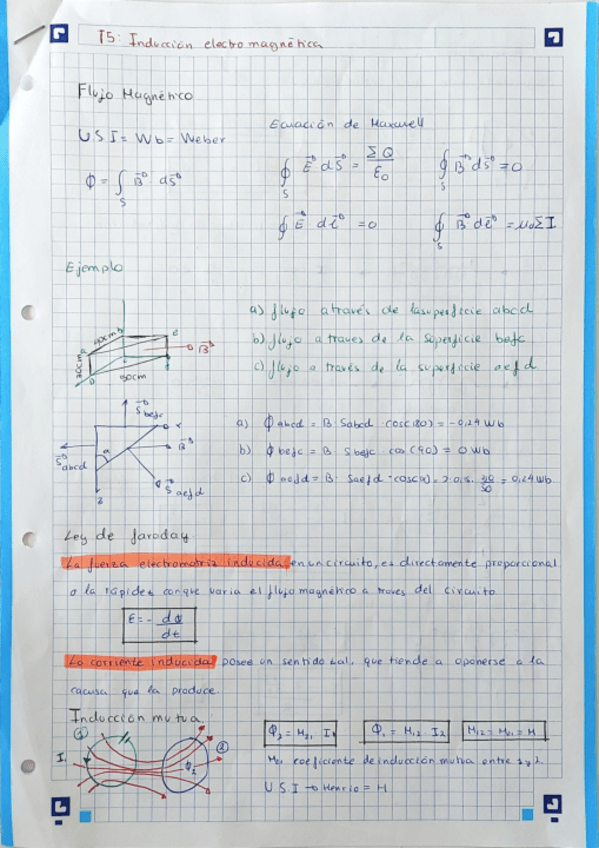 T5: Inducción electromagnética
Flujo Magnético
U.S.I = Wb = Weber
ϕ = ∫S B⃗ · dS⃗
Ecuación de Maxwell
∮S E⃗ dS⃗ = ΣQ/ε0
∮S B⃗ dS⃗ = 0
∮ E⃗ dl⃗ = 0
∮S B⃗ dl⃗ = μ0 Σ I
Ejemplo
40cm
30cm
50cm
B⃗
a) flujo a través de la superficie abcd
b) flujo a traves de la soperficie befc
c) flujo a través de la superficie aefd
S⃗befc
S⃗abcd
B⃗
S⃗aefd
a) ϕabcd = B · Sabcd · cos(180) = -0,24 Wb
b) ϕbefc = B · Sbefc · cos(90) = 0 Wb
c) ϕaefd = B · Saefd · cos(α) = 0,24 Wb
Ley de faraday
La fuerza electromotriz inducida en un circuito, es directamente proporcional
a la rapidez con que varia el flujo magnético a traves del circuito
ε = - dϕ/dt
La corriente inducida posee un sentido tal, que tiende a oponerse a la
cacusa que la produce.
Inducción mutua
① ② I1 ϕ2
ϕ2 = M21 I1
ϕ1 = M12 · I2
M12 = M21 = M
M21 coeficiente de inducción mutua entre 1 y 2.
U.S.I → Henrio = H